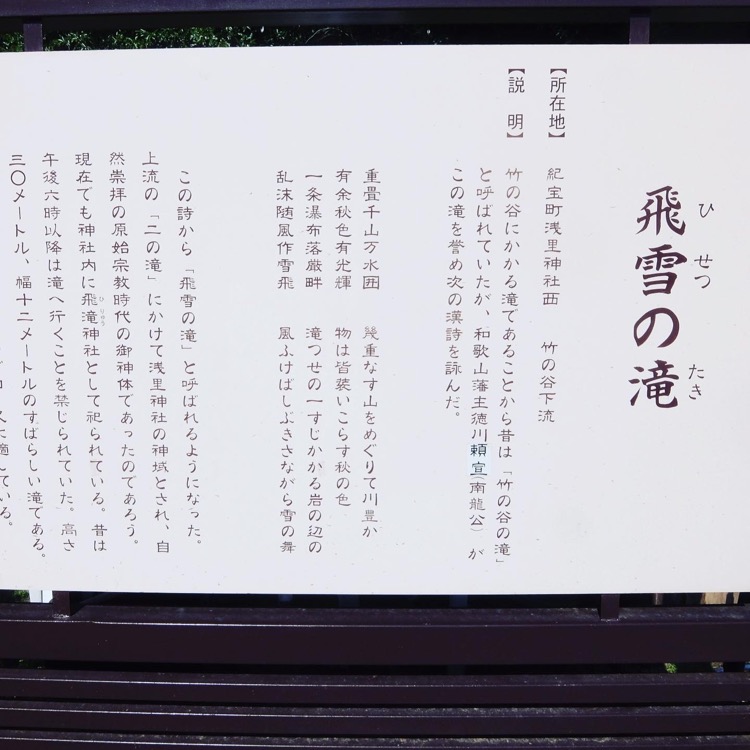 飛雪の滝
ひせつ
たき
【所在地】 紀宝町浅里神社西 竹の谷下流
【説 明】 竹の谷にかかる滝であることから昔は「竹の谷の滝」
と呼ばれていたが、和歌山藩主徳川頼宣(南龍公)が
この滝を誉め次の漢詩を詠んだ。
重畳千山万水囲 幾重なす山をめぐりて川豊か
有余秋色有光輝 物は皆装いこらす秋の色
一条瀑布落厳畔 滝つせの一すじかかる岩の辺の
乱沫随風作雪飛 風ふけばしぶきさながら雪の舞
この詩から「飛雪の滝」と呼ばれるようになった。
上流の「二の滝」にかけて浅里神社の神域とされ、自
然崇拝の原始宗教時代の御神体であったのであろう。
現在でも神社内に飛滝神社として祀られている。昔は
ひりゅう
午後六時以降は滝へ行くことを禁じられていた。高さ
三〇メートル、幅十二メートルのすばらしい滝である。
に適している。